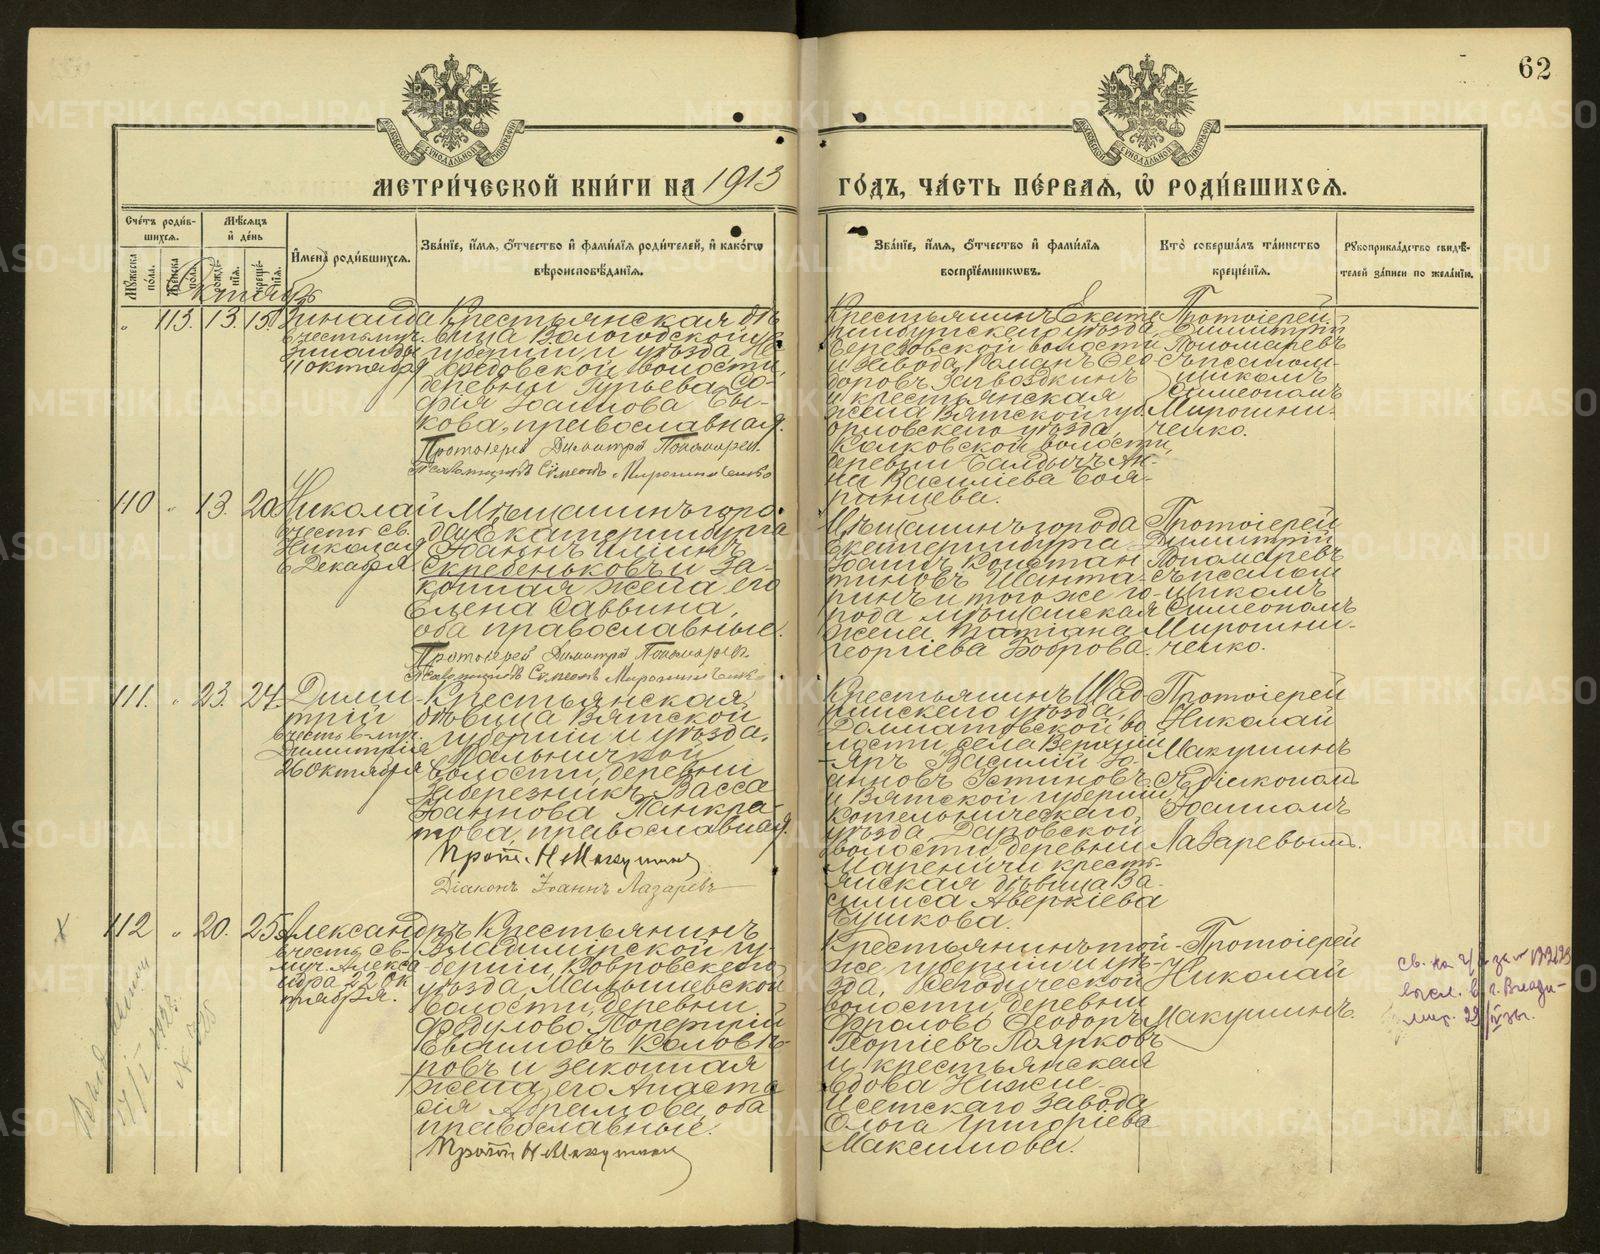 62
МОСКОВСКОЙ СѴНОДАЛЬНОЙ ТИПОГРАФІИ
МОСКОВСКОЙ СѴНОДАЛЬНОЙ ТИПОГРАФІИ
МЕТРИ́ЧЕСКОЙ КНИ́ГИ НА 1913
ГО́ДЪ, ЧА́СТЬ ПЕ́РВАѦ, Ѡ РОДИ́ВШИХСѦ.
Сче́тъ роди́в-
шихсѧ.
Мꙋ́жеска по́ла.
Же́нска по́ла.
Мѣ́сѧцъ
и҆ де́нь
рожде́-
нїѧ.
креще́-
нїѧ.
И҆мена̀ роди́вшихсѧ.
Зва́нїе, и҆́мѧ, ѻ҆́тчество и҆ фами́лїѧ роди́телей, и҆ како́гѡ
вѣроисповѣ́данїѧ.
Зва́нїе, и҆́мѧ, ѻ҆́тчество и҆ фами́лїѧ
воспрїе́мникѡвъ.
Кто̀ соверша́лъ та́инство
креще́нїѧ.
Рꙋкоприкла́дство свидѣ́-
телей за́писи по жела́нїю.
Октябрь
„ 113. 13. 15.
Зинаида
в честь муч.
Зинаиды
11 октября
Крестьянская дѣ-
вица Вологодской
губерніи и уѣзда, Не-
федовской волости,
деревни Гурьева Со-
фія Іоаннова Бы-
кова, православная.
Протоіерей Димитрій Пономарев
Псаломщикъ Симеонъ Мирошниченко
Крестьянинъ Екате-
ринбургскаго уѣзда,
Березовской волости
и завода Романъ Ѳео-
доровъ Загвоздкинъ
и крестьянская
жена Вятской губ.
Орловскаго уѣзда,
волости,
деревни Ан-
на Василіева Боя-
ринцева.
Протоіерей
Димитрій
Пономаревъ
съ псалом-
щикомъ
Симеономъ
Мирошни-
ченко.
110 „ 13. 20.
Николай
в честь св.
Николая
6 Декабря
Мѣщанинъ горо-
да Екатеринбурга
Іоаннъ Иліинъ
Скребеньковъ и за-
конная жена его
Елена Саввина,
оба православные.
Протоіерей Димитрій Пономарев
Псаломщикъ Симеонъ Мирошниченко
Мѣщанинъ города
Екатеринбурга
Іоаннъ Констан-
тиновъ Шанта-
ринъ и того же го-
рода мѣщанская
жена Татіана
Георгіева Боброва.
Протоіерей
Димитрій
Пономаревъ
съ псалом-
щикомъ
Симеономъ
Мирошни-
ченко.
111. „ 23. 24.
Дими-
трій
в честь в-муч.
Димитрія
26 Октября
Крестьянская
дѣвица Вятской
губерніи и уѣзда,
волости, деревни
Заберезникъ Васса
Іоаннова Панкра-
това, православная.
Прот. Н Макушинъ
Діаконъ Іоаннъ Лазаревъ
Крестьянинъ Шад-
ринскаго уѣзда,
Далматовской во-
лости, села Верхній
Яръ Василій Іо-
анновъ Устиновъ
и Вятской губерніи
Котельническаго
уѣзда, Даровской
волости, деревни
Мареничи кресть-
янская дѣвица Ва-
силиса Аверкіева
Бушкова.
Протоіерей
Николай
Макушинъ
съ діакономъ
Іоанномъ
Лазаревымъ.
112 „ 20. 25.
Александръ
в честь св.
муч. Алекса-
ндра 22 Ок-
тября.
Крестьянинъ
Владимірской гу-
берніи, Ковровскаго
уѣзда, Малышевской
волости, деревни
Федулово Порфирій
Евфимовъ
и законная
жена его Анаста-
сія Абрамова, оба
православные.
Прот. Н Макушинъ
Крестьянинъ той-
же губерніи и уѣ-
зда,
волости, деревни
Фролово Ѳеодоръ
Георгіевъ Поярковъ
и крестьянская
вдова Нижне-
Исетскаго завода
Ольга Григоріева
Максимова.
Протоіерей
Николай
Макушинъ.